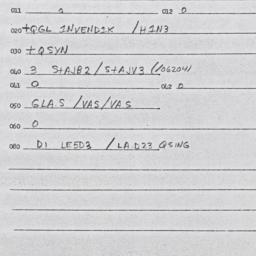 011 012 0
020 +QGL INVENDIX /HIN3
030 +QSYN
040 3 S+AJB2/S+AJV3 (/06204)
041 0 042 0
050 GLAS /VAS/VAS
060 0
080 DI LESD3 /LA.D23 QSING